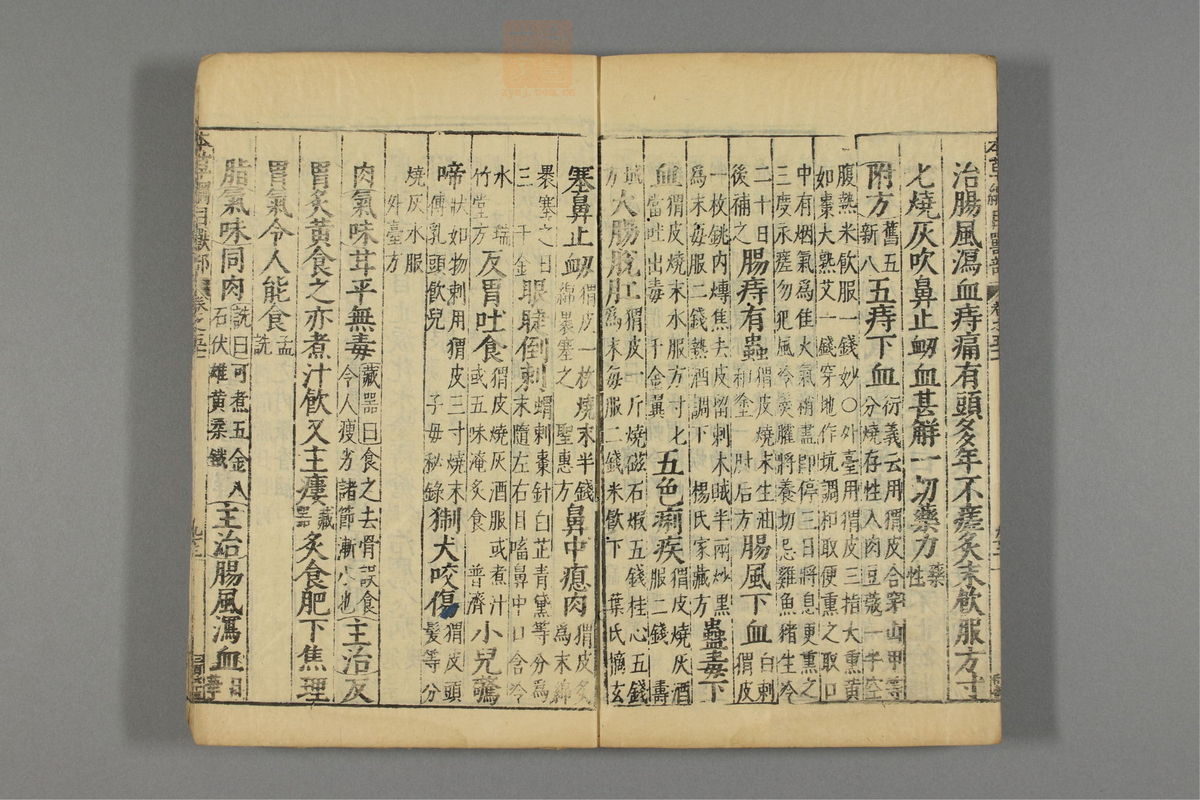 治腸風瀉血痔痛有頭多年不瘥炙末飲服方寸
匕燒灰吹鼻止衂血甚解一切藥力藥性
附方舊五新八五痔下血衍義云用猬皮合穿山甲等分燒存性入肉豆蔻一半空
腹熱米飲服一錢妙○外臺用猬皮三指大熏黃如棗大熟艾一錢穿地作坑調和取便熏之取口
中有烟氣爲佳火氣稍盡即停三日將息更熏之三度永瘥勿犯風冷羹臛將養切忌雞魚猪生冷
二十日後補之腸痔有蟲猬皮燒末生油和塗肘后方腸風下血白刺猬皮
一枚銚內煿焦去皮留刺木賊半兩炒黑爲末每服二錢熱酒調下楊氏家藏方蠱毒下
血猬皮燒末水服方寸匕當吐出毒千金翼五色痢疾猬皮燒灰酒服二錢壽
域方大腸脫肛猬皮一斤燒磁石煅五錢桂心五錢爲末每服二錢米飲下葉氏摘玄
塞鼻止衂猬皮一枚燒末半錢綿裹塞之聖惠方鼻中瘜肉猬皮炙爲末綿
裹塞之日三千金眼睫倒刺猬刺棗針白芷青黛等分爲末隨左右目嗜鼻中口含冷
水瑞竹堂方反胃吐食猬皮燒灰酒服或煮汁或五味淹炙食普濟小兒驚
啼狀如物刺用猬皮三寸燒末傅乳頭飲兒子母秘錄猘犬咬傷猬皮頭髮等分
燒灰水服外臺方
肉氣味甘平無毒藏器曰食之去骨誤食令人瘦劣諸節漸小也主治反
胃炙黃食之亦煮汁飲又主瘻藏器炙食肥下焦理
胃氣令人能食孟詵
脂氣味同肉詵曰可煮五金八石伏雄黃柔鐵主治腸風瀉血日華